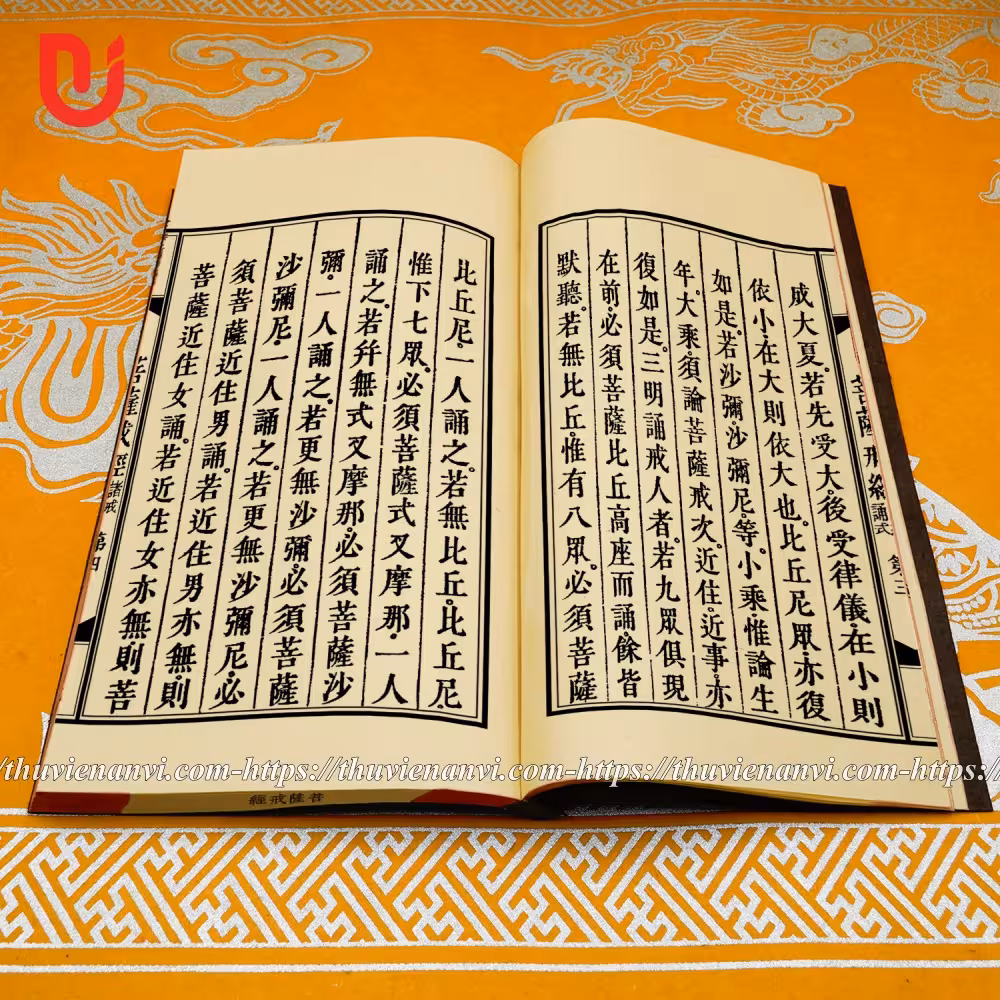 誦式
成大夏。若先受大。後受律儀。在小則
依小。在大則依大也。比丘尼眾。亦復
如是。若沙彌。沙彌尼。等。小乘。惟論生
年。大乘。須論菩薩戒次。近住。近事。亦
復如是。三明誦戒人者。若九眾俱現
在前。必須菩薩比丘高座而誦。餘皆
默聽。若無比丘。惟有八眾。必須菩薩
比丘尼。一人誦之。若無比丘。比丘尼。
惟下七眾。必須菩薩式叉摩那。一人
誦之。若幷無式叉摩那。必須菩薩沙
彌。一人誦之。若更無沙彌。必須菩薩
沙彌尼。一人誦之。若更無沙彌尼。必
須菩薩近住男誦。若近住男亦無。則
菩薩近住女誦。若近住女亦無。則菩
菩薩戒經 諸戒 第四
經戒薩菩
/thuvienanvi.com-https://thuvienanvi.com-https://thuvienanvi.com-https:/